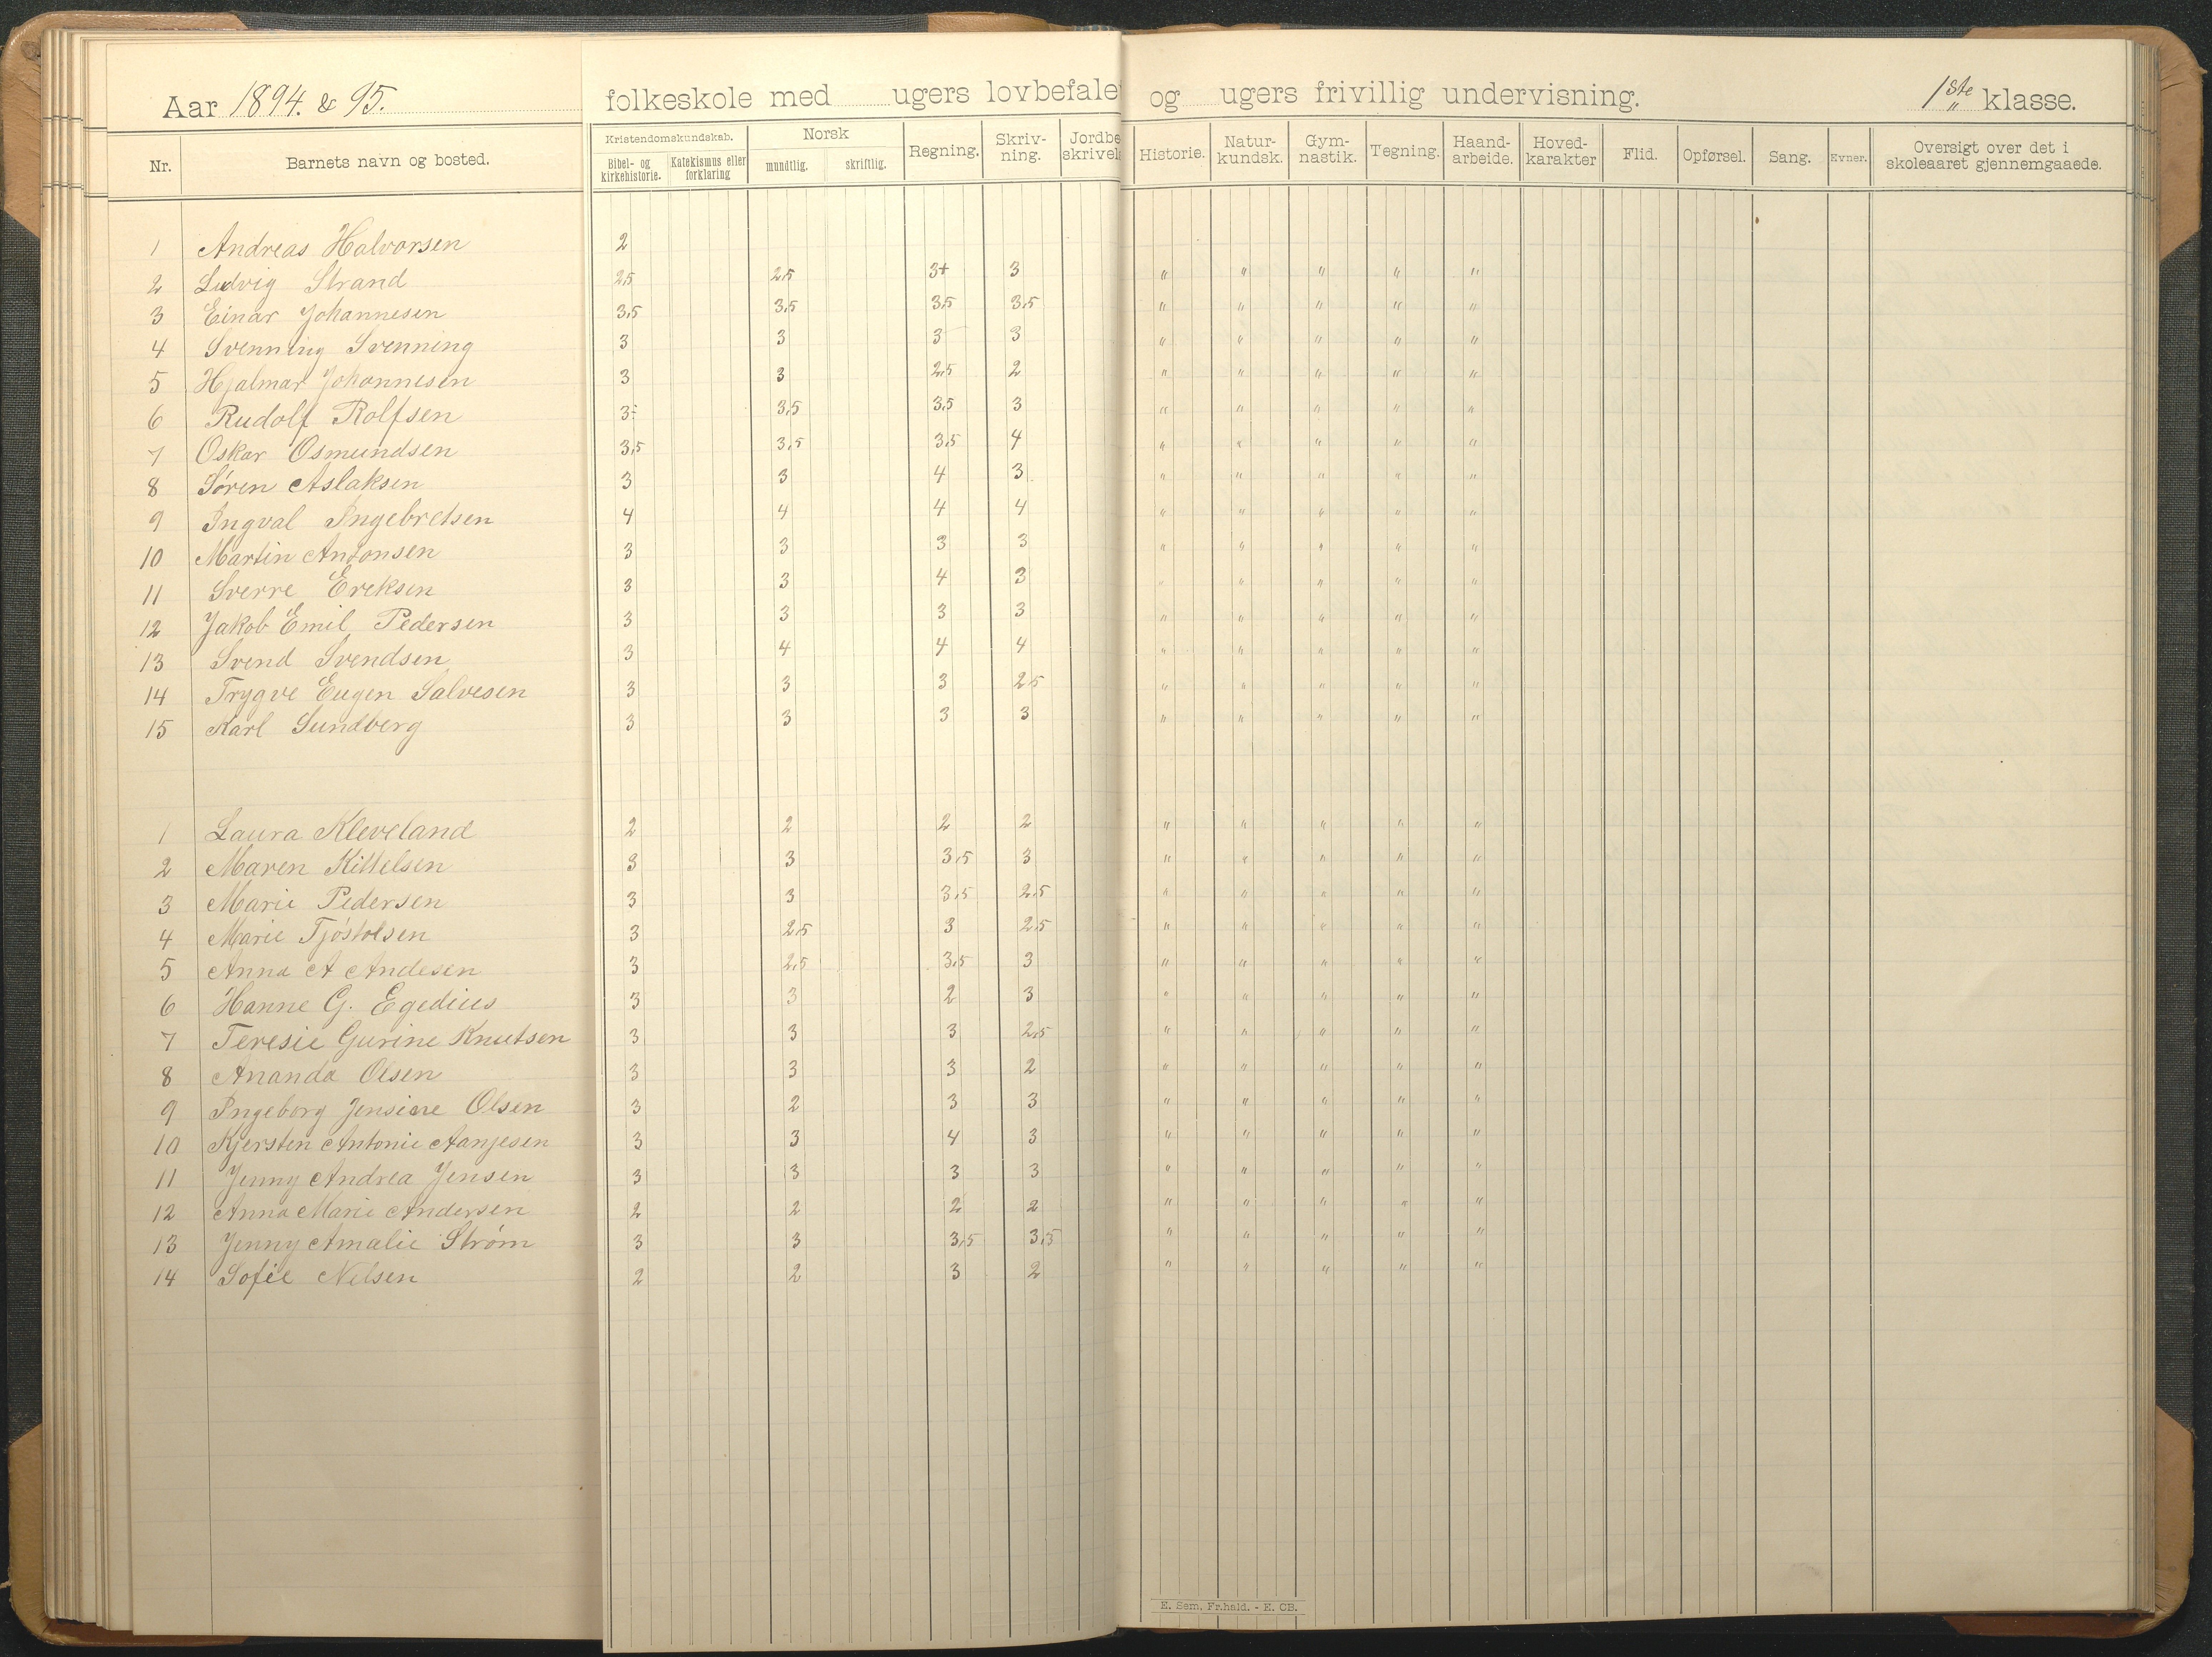 Aar 1894. & 95. folkeskole med ugers lovbefalet og ugers frivillig undervisning. 1ste klasse.
Nr. Barnets navn og bosted. Kristendomskundskab. Bibel- og kirkehistorie. Katekismus eller forklaring Norsk mundtlig. skriftlig. Regning. Skriv-ning. Jordbe skrivels Historie. Natur-kundsk. Gym-nastik. Tegning. Haand-arbeide. Hoved-karakter Flid. Opførsel. Sang. Evner. Oversigt over det i skoleaaret gjennemgaaede.
1 Andreas Halvorsen 2
2 Ludvig Strand 2,5 2,5 3+ 3 " " " " "
3 Einar Johannesen 3,5 3,5 3,5 3,5 " " " " "
4 Svenning Svenning 3 3 3 3 " " " " "
5 Hjalmar Johannesen 3 3 2,5 2 " " " " "
6 Rudolf Rolfsen 3÷ 3,5 3,5 3 " " " " "
7 Oskar Osmundsen 3,5 3,5 3,5 4 " " " " "
8 Søren Aslaksen 3 3 4 3 " " " " "
9 Ingval Ingebretsen 4 4 4 4 " " " " "
10 Martin Antonsen 3 3 3 3 " " " " "
11 Sverre Ereksen 3 3 4 3 " " " " "
12 Jakob Emil Pedersen 3 3 3 3 " " " " "
13 Svend Svendsen 3 4 4 4 " " " " "
14 Trygve Eugen Salvesen 3 3 3 2,5 " " " " "
15 Karl Sundberg 3 3 3 3 " " " " "
1 Laura Kleveland 2 2 2 2 " " " " "
2 Maren Kittelsen 3 3 3,5 3 " " " " "
3 Marie Pedersen 3 3 3,5 2,5 " " " " "
4 Marie Tjøstolsen 3 2,5 3 2,5 " " " " "
5 Anna A Andesen 3 2,5 3,5 3 " " " " "
6 Hanne G. Egedius 3 3 2 3 " " " " "
7 Teresie Gurine Knutsen 3 3 3 2,5 " " " " "
8 Ananda Olsen 3 3 3 2 " " " " "
9 Ingeborg Jensine Olsen 3 2 3 3 " " " " "
10 Kjersten Antonie Aanjesen 3 3 4 3 " " " " "
11 Jenny Andrea Jensen 3 3 3 3 " " " " "
12 Anna Marie Andersen 2 2 2 2 " " " " "
13 Jenny Amalie Strøm 3 3 3,5 3,5 " " " " "
14 Sofie Nelsen 2 2 3 2 " " " " "
E. Sem, Fr.hald. - E. CB.